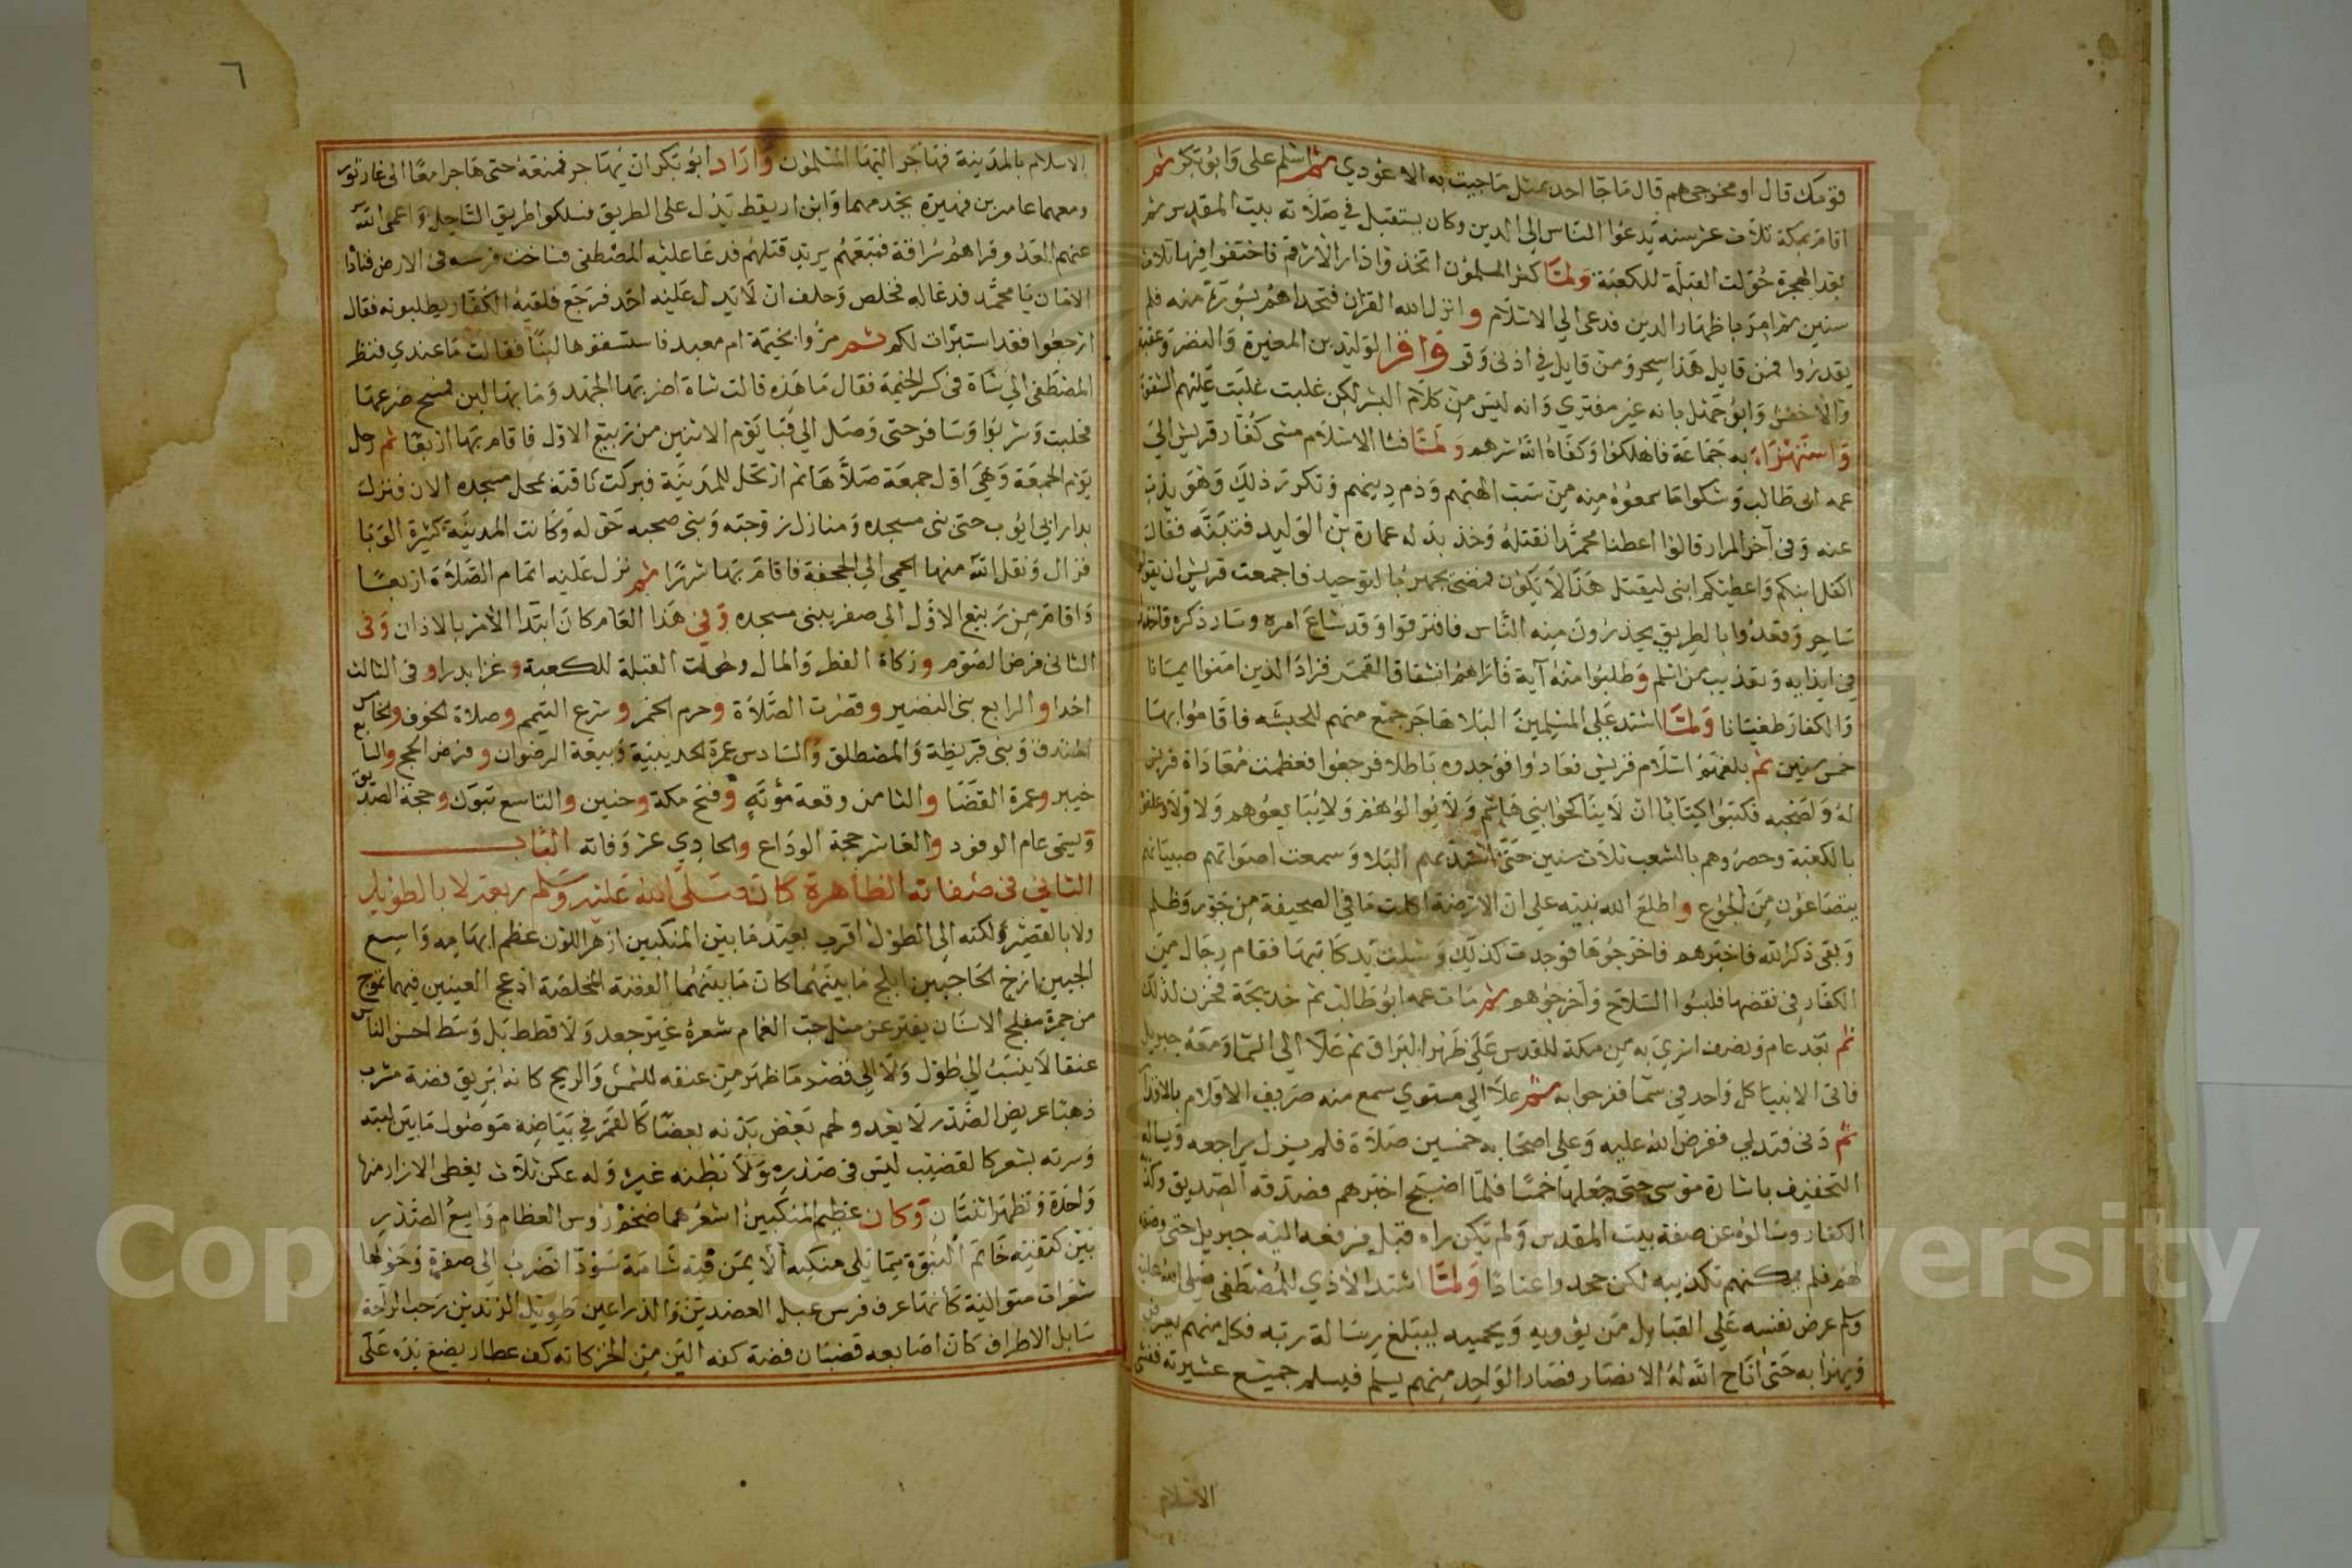 قومك قال او مخرجي هم قال ما جا احد بمثل ما جيت به الا عودي ثم اسلم علي وابو بكر ثم
اقام بمكة ثلاث عشر سنه يدعوا الناس الي الدين وكان يستقبل في صلاته بيت المقدس ثم
بعد الهجرة حولت القبلة للكعبة ولما كثر المسلمون اتخذوا دار الارقم فاختفوا فيها ثلاث
سنين ثم امر باظهار الدين فدعى الي الاسلام وانزل الله القران فتحداهم بسورة منه فلم
يقدروا فمن قايل هذا سحر ومن قايل في اذني وقر واقر الوليد بن المغيرة والنضر وعتبة
والاخنس وابو جهل بانه غير مفتري وانه ليس من كلام البشر لكن غلبت غلبت عليهم الشقوة
واستهزاء به جماعة فاهلكوا وكفاه الله شرهم ولما فشا الاسلام مشى كفار قريش الي
عمه ابى طالب وشكوا ما سمعوه منه من سب الهتهم وذم دينهم وتكرر ذلك وهو يذب
عنه وفى آخر المرار قالوا اعطنا محمدا نقتله وخذ بدله عمارة بن الوليد فتبنه فقال
اكفل ابنكم واعطيكم ابنى ليقتل هذا لا يكون فمضى يجهر بالتوحيد فاجمعت قريش ان يقولوا
ساحر وقعدوا بالطريق يحذرون منه الناس فافترقوا وقد شاع امره وسار ذكره فاخذوا
في ايذايه وتعذيب من اسلم وطلبوا منه آية فأراهم انشقاق القمر فزاد الذين امنوا ايمانا
والكفار طغيانا ولما اشتد علي المسلمين البلا هاجر جمع منهم للحبشه فاقاموا بها
خمس سنين ثم بلغهم اسلام قريش فعادوا فوجدوه باطلا فرجعوا فعظمت معاداة قريش
له ولصحبه فكتبوا كتابا ان لا يناكحوا بني هاشم ولا يوالوهم ولا يبايعوهم ولا ولا وعلقوه
بالكعبة وحصروهم بالشعب ثلاث سنين حتى اشتد بهم البلا وسمعت اصواتهم صبيانهم
يتضاعون من الجوع واطلع الله نبيه علي ان الارضة اكلت ما في الصحيفة من جور وظلم
وبقى ذكر الله فاخبرهم فاخرجوها فوجدت كذلك وشلت يد كاتبها فقام رجال من
الكفار في نقضها فلبسوا السلاح واخرجوهم ثم مات عمه ابو طالب ثم خديجة فحزن لذلك
ثم بعد عام ونصف اسري به من مكة للقدس على ظهر البراق ثم علا الي السما ومعه جبريل
فاتى الانبيا كل واحد في سما ففرحوا به ثم علا الي مستوي سمع منه صريف الاقلام بالاقدار
ثم دنى فتدلي ففرض الله عليه وعلي اصحابه خمسين صلاة فلم يزل يراجعه ويساله
التخفيف باشارة موسى حتى جعلها خمسا فلما اصبح اخبرهم فصدقه الصديق وكذبه
الكفار وسالوه عن صفة بيت المقدس ولم تكن راه قبل فرفعه اليه جبريل حتى وصفه
لهم فلم يمكنهم تكذيبه لكن جحدوا عنادا ولما اشتد الاذي للمصطفى صلي الله عليه
وسلم عرض نفسه علي القبايل من يؤويه ويحميه ليبلغ رسالة ربه فكل منهم يعرض
ويهزا به حتى اتاح الله له الانصار فصار الواحد منهم يسلم فيسلم جميع عشيرته ففشى
الاسلام
٦
الاسلام بالمدينة فهاجر اليها المسلمون واراد ابو بكر ان يهاجر فمنعه حتى هاجرا معا الى غار ثور
ومعهما عامر بن فهيرة يخدمهما وابن اريقط يدل على الطريق فسلكوا طريق الساحل واعمى الله
عنهم العدو فراهم سراقة فتبعهم يريد قتلهم فدعا عليه المصطفى فساخت فرسه فى الارض فنادا
الامان يا محمد فدعا له فخلص وحلف ان لا يدل عليه احد فرجع فلقيه الكفار يطلبونه فقال
ارجعوا فقد استبرات لكم ثم مروا بخيمة ام معبد فاستسقوها لبنا فقالت ما عندي فنظر
المصطفى الي شاة فى كسر الخيمة فقال ما هذه قالت شاة اضر بها الجهد وما بها لبن فمسح ضرعها
فحلبت وشربوا وسافر حتى وصل الي قبا يوم الاثنين من ربيع الاول فاقام بها اربعا ثم رحل
يوم الجمعة وهي اول جمعة صلاها ثم ارتحل للمدينة فبركت ناقته بمحل مسجده الان فنزل
بدار ابي ايوب حتى بنى مسجده ومنازل زوجته وبنى صحبه حوله وكانت المدينة كثيرة الوبا
فزال ونقل الله منها الحمي الي الجحفة فاقام بها شهرا ثم نزل عليه اتمام الصلاة اربعا
واقام من ربيع الاول الي صفر يبنى مسجده وفي هذا العام كان ابتدا الامر بالاذان وفى
الثانى فرض الصوم وزكاة الفطر والمال وحولت القبلة للكعبة وغزا بدرا وفى الثالث
احدا والرابع بنى النضير وقصرت الصلاة وحرم الخمر وشرع التيمم وصلاة الخوف والخامس
الخندق وبنى قريظة والمصطلق والسادس عمرة الحديبية وبيعة الرضوان وفرض الحج والسابع
خيبر وعمرة القضا والثامن وقعة مؤته وفتح مكة وحنين والتاسع تبوك وحجة الصديق
ويسمى عام الوفود والعاشر حجة الوداع والحادي عشر وفاته الباب
الثاني فى صفاته الظاهرة كان صلى الله عليه وسلم ربعه لا بالطويل
ولا بالقصير ولكنه الي الطول اقرب بعيد ما بين المنكبين ازهر اللون عظم ابهامه واسع
الجبين ازج الحاجبين ابلج ما بينهما كان ما بينهما الفضة المخلصة ادعج العينين فيهما تموج
من حمرة مفلج الاسنان يفتر عن مثل حب الغمام شعره غير جعد ولا قطط بل وسط احسن الناس
عنقا لا ينسب الي طول ولا الي قصر ما ظهر من عنقه للشمس والريح كانه ابريق فضة مشرب
ذهبا عريض الصدر لا يعدو لحم بعض بدنه بعضا كالقمر في بياضه موصول ما بين لبته
وسرته بشعر كالقضيب ليس فى صدره ولا بطنه غيره وله عكن ثلاث يغطى الازار منها
واحدة وتظهر اثنتان وكان عظيم المنكبين اشعرهما ضخم رؤس العظام واسع الصدر
بين كتفيه خاتم النبوة مما يلى منكبه الايمن فيه شامة سودا تضرب الي صفرة وحولها
شعرات متوالية كانها عرف فرس عبل العضدين والذراعين طويل الزندين رحب الراحة
سايل الاطراف كان اصابعه قضبان فضة كفه الين من الخز كانه كف عطار يضع يده على
Copyright © King Saud University